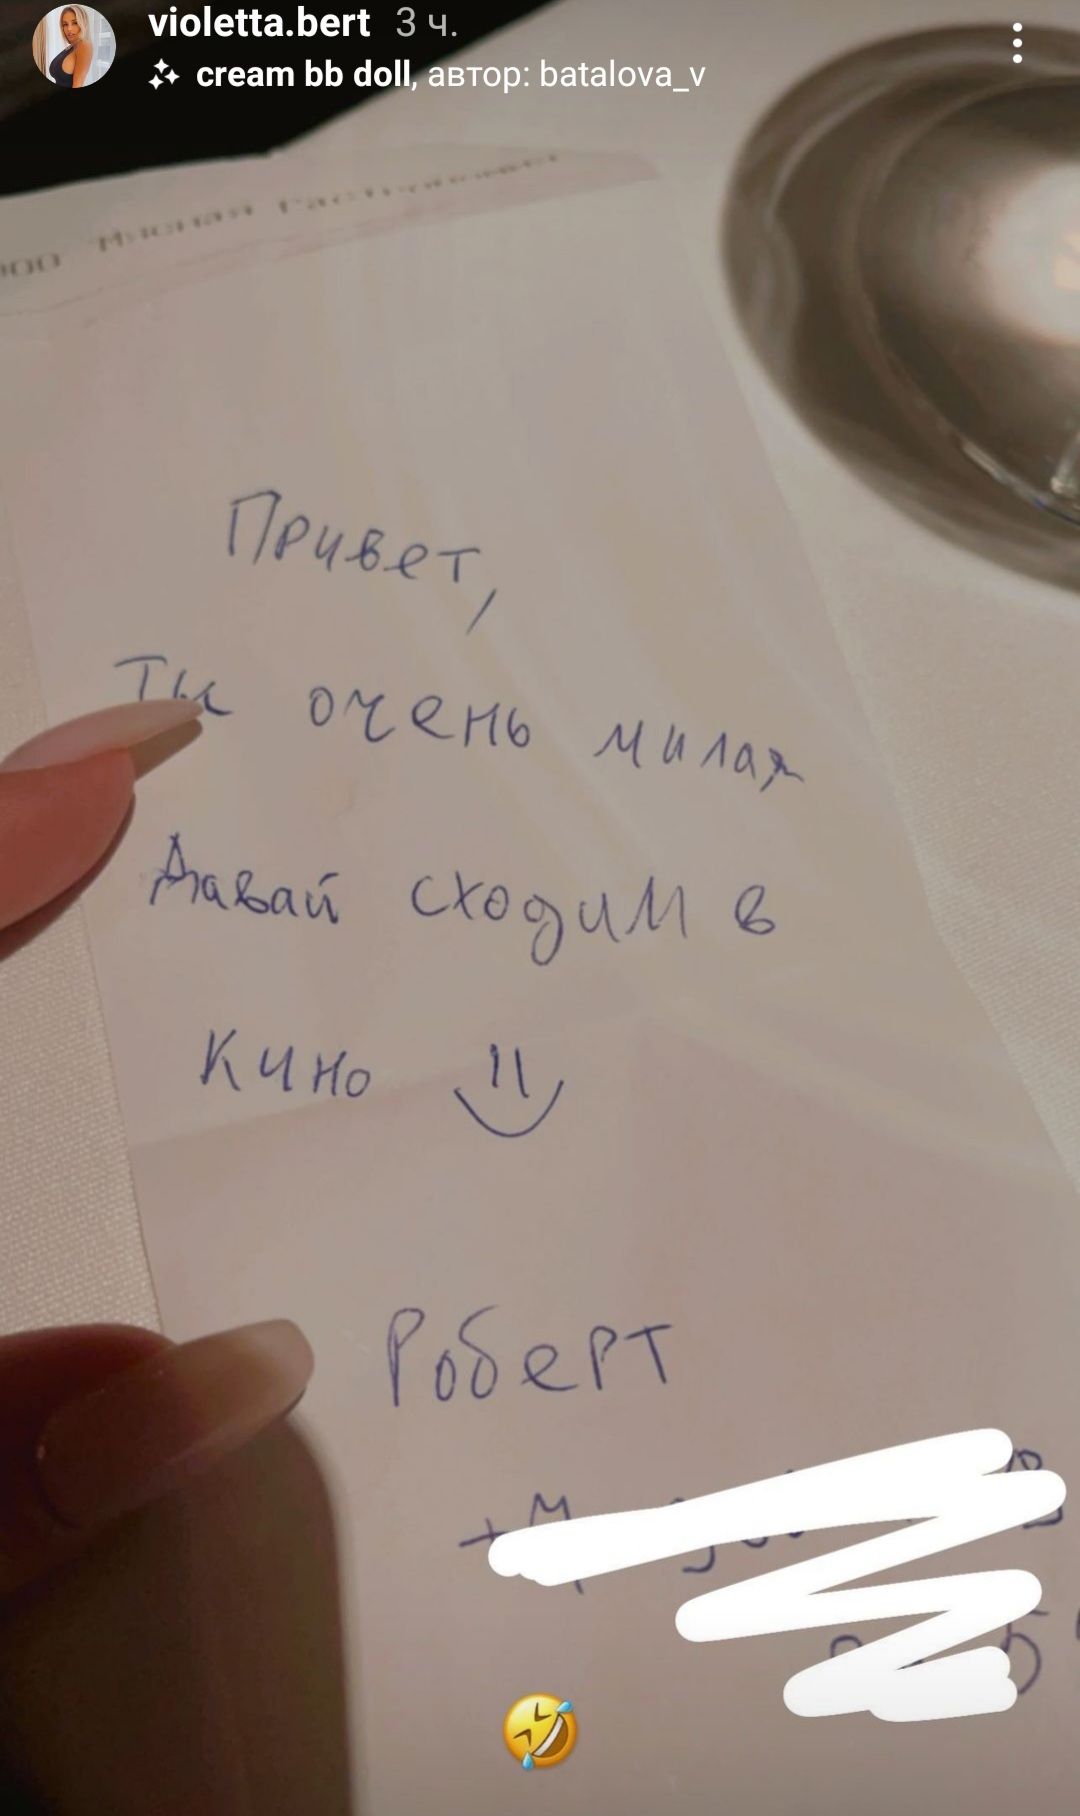 violetta.bert 3 ч.
cream bb doll, автор: batalova_v
ООО Мясная
Привет,
Ты очень милая
Давай сходим в
Кино
Роберт